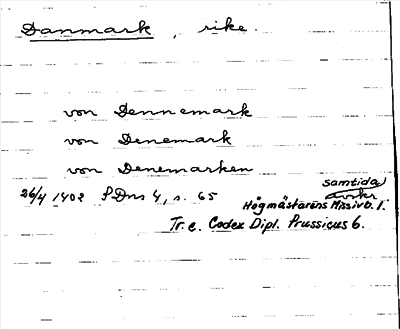 Danmark, rike.
von Dennemark
von Denemark
von Denemarken
samtida
avskr
26/4 1402 SDns 4, s. 65 Högmästarens Missivb. 1.
Tr. e. Codex Dipl. Prussicus 6.